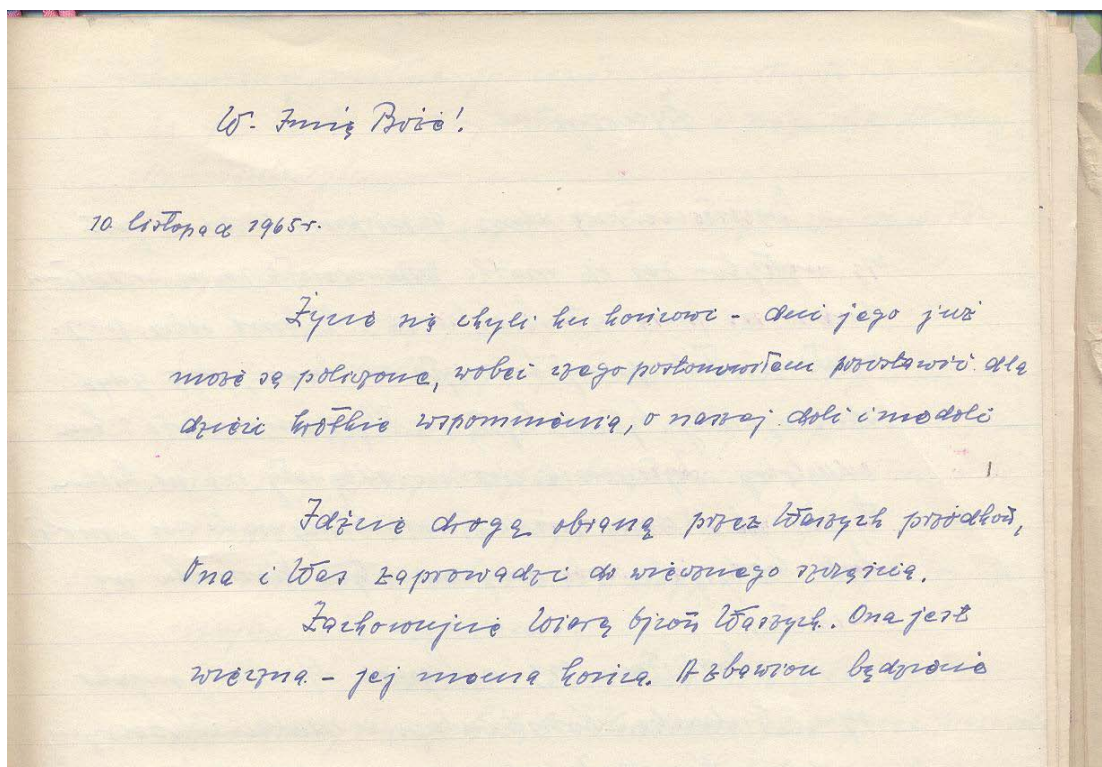 W. Imię Boże!
10 listopad 1965 r.
Życie się chyli ku końcowi - dni jego już
może są policzone, wobec czego postanowiłem pozostawić dla
dzieci krótkie wspomnienia, o naszej doli i niedoli
Idźcie drogą obraną przez Waszych przodków,
Ona i Was zaprowadzi do wiecznego szczęścia.
Zachowujcie Wiarę Ojców Waszych. Ona jest
wieczna - jej niema końca. A zbawion będziecie